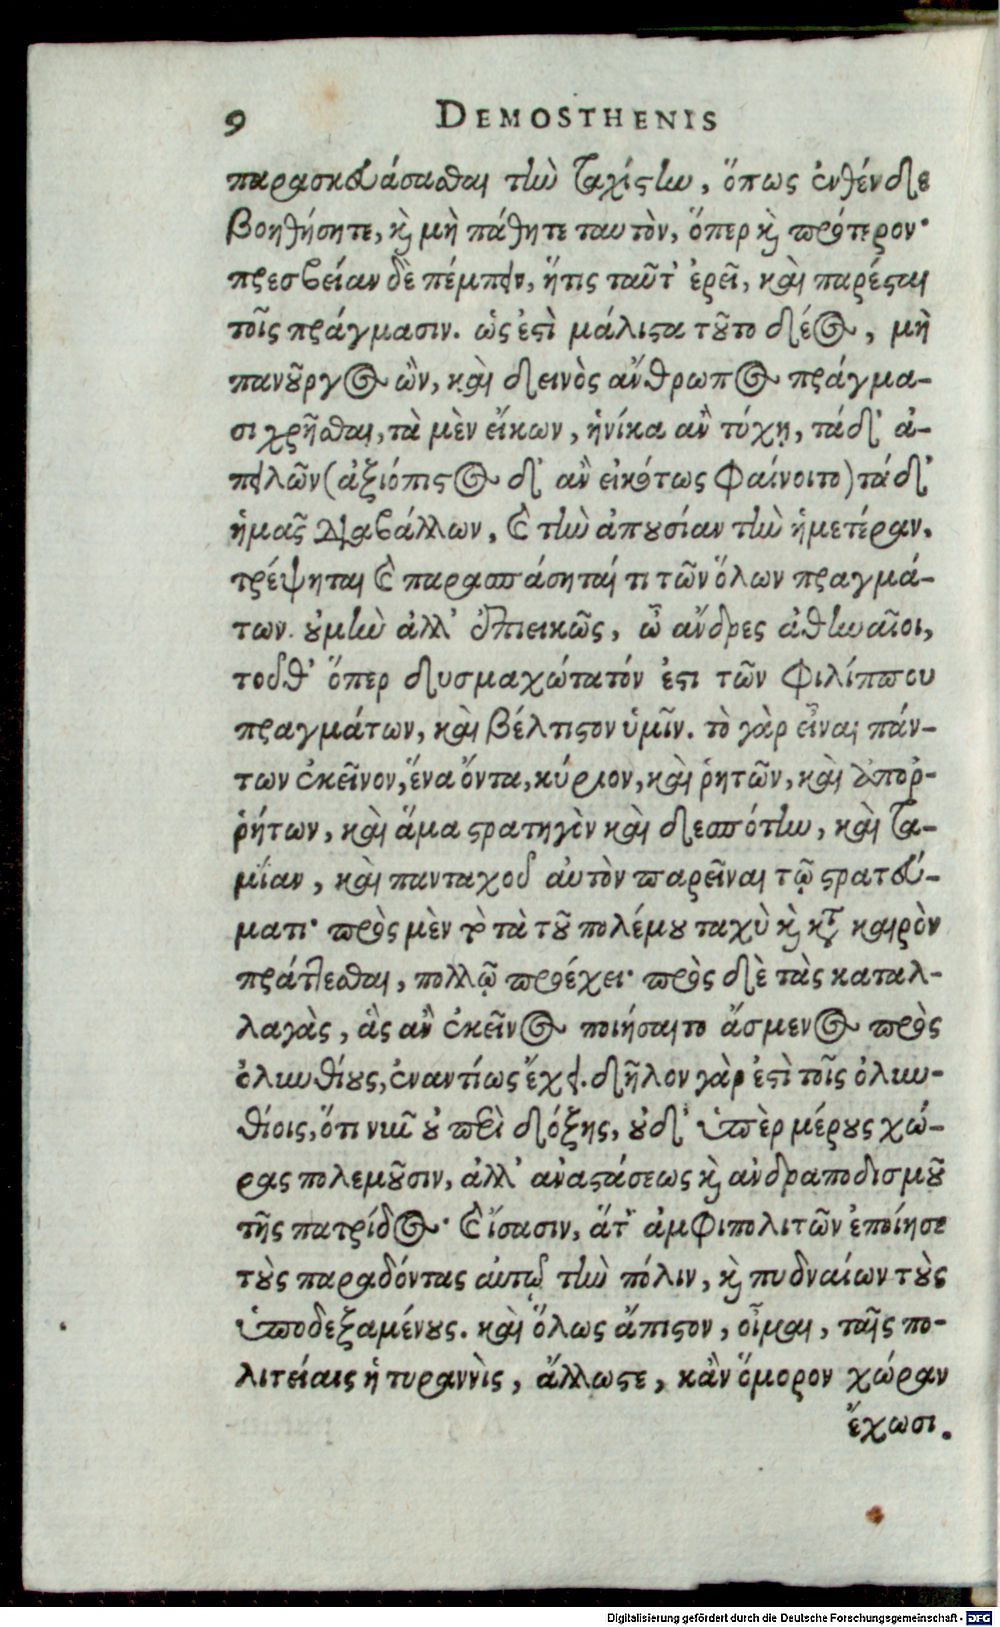 9 DEMOSTHENIS
παρασκευάσασθαι τὴν ταχίστην, ὅπως ἐνθένδε
βοηθήσητε, καὶ μὴ πάθητε ταυτὸν, ὅπερ καὶ πρότερον·
πρεσβείαν δὲ πέμπειν, ἥτις ταῦτ' ἐρεῖ, καὶ παρέσται
τοῖς πράγμασιν. ὡς ἐστὶ μάλιστα τοῦτο δέος, μὴ
πανοῦργος ὢν, καὶ δεινὸς ἄνθρωπος πράγμα-
σι χρῆσθαι, τὰ μὲν εἴκων, ἡνίκα ἂν τύχῃ, τά δ' ἀ-
πειλῶν (ἀξιόπιστος δ' ἂν εἰκότως φαίνοιτο) τά δ'
ἡμᾶς διαβάλλων, καὶ τὴν ἀπουσίαν τὴν ἡμετέραν,
τρέψηται καὶ παρασπάσηταί τι τῶν ὅλων πραγμά-
των. οὐ μὴν ἀλλ' ἐπιεικῶς, ὦ ἄνδρες ἀθηναῖοι,
τοῦθ' ὅπερ δυσμαχώτατόν ἐστι τῶν Φιλίππου
πραγμάτων, καὶ βέλτιστον ὑμῖν. τὸ γὰρ εἶναι πάν-
των ἐκεῖνον, ἕνα ὄντα, κύριον, καὶ ῥητῶν, καὶ ἀποῤ-
ῥήτων, καὶ ἅμα στρατηγὸν καὶ δεσπότην, καὶ τα-
μίαν, καὶ πανταχοῦ αὐτὸν παρεῖναι τῷ στρατεύ-
ματι· πρὸς μὲν τὸ τὰ τοῦ πολέμου ταχὺ καὶ κατὰ καιρὸν
πράττεσθαι, πολλῷ προέχει· πρὸς δὲ τὰς καταλ-
λαγὰς, ἃς ἂν ἐκεῖνος ποιήσαιτο ἄσμενος πρὸς
ὀλυνθίους, ἐναντίως ἔχει. δῆλον γάρ ἐστὶ τοῖς ὀλυν-
θίοις, ὅτι νῦν οὐ περὶ δόξης, οὐδ' ὑπὲρ μέρους χώ-
ρας πολεμοῦσιν, ἀλλ' ἀναστάσεως καὶ ἀνδραποδισμοῦ
τῆς πατρίδος· καὶ ἴσασιν, ἅτ' ἀμφιπολιτῶν ἐποίησε
τοὺς παραδόντας αὐτῷ τὴν πόλιν, καὶ πυδναίων τοὺς
ὑποδεξαμένους. καὶ ὅλως ἄπιστον, οἶμαι, ταῖς πο-
λιτείαις ἡ τυραννὶς, ἄλλωστε, κἂν ὅμορον χώραν
ἔχωσι.
Digitalisierung gefördert durch die Deutsche Forschungsgemeinschaft - DFG